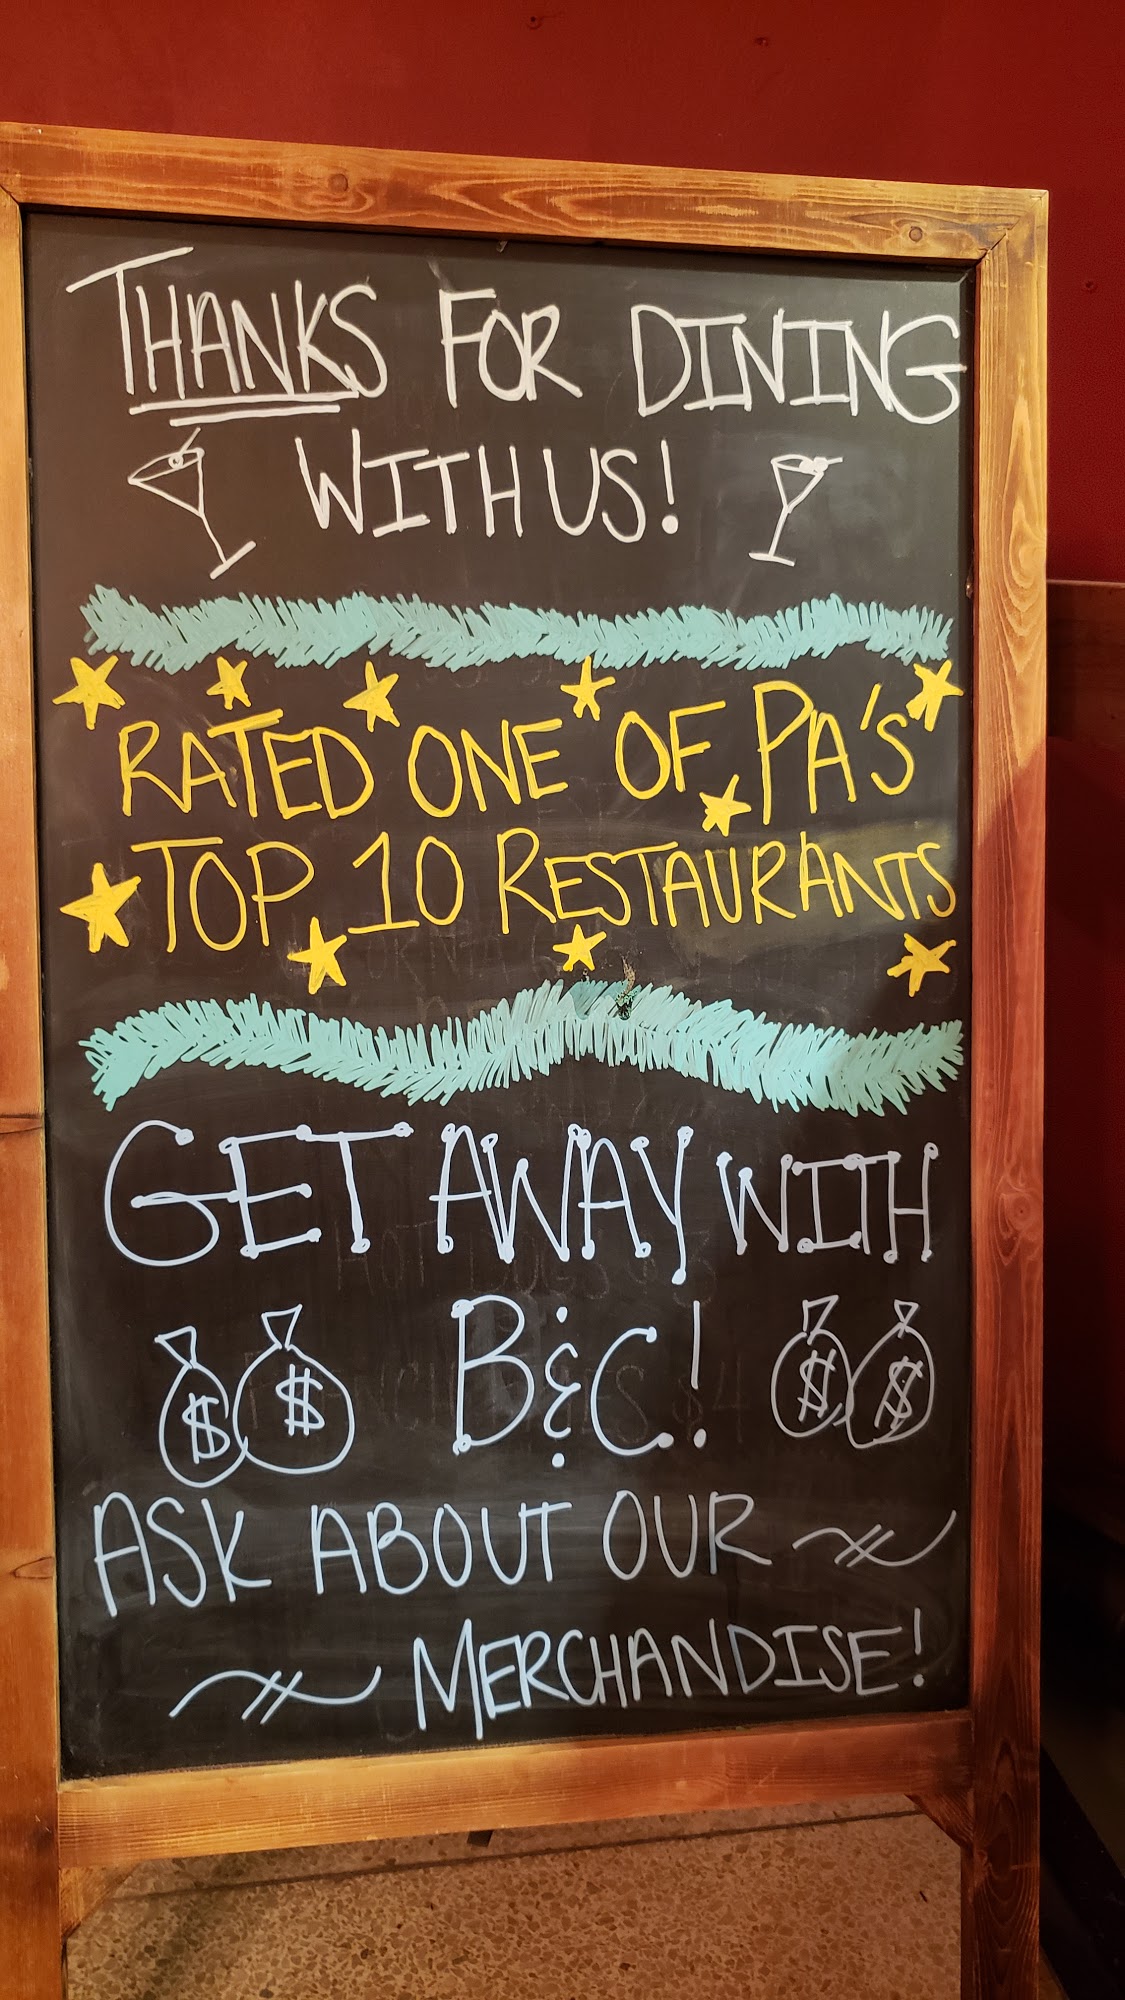 THANKS FOR DINING
WITH US!
RATED ONE OF PA'S
TOP 10 RESTAURANTS
GET AWAY WITH
$ $ B&C! $ $
ASK ABOUT OUR
MERCHANDISE!